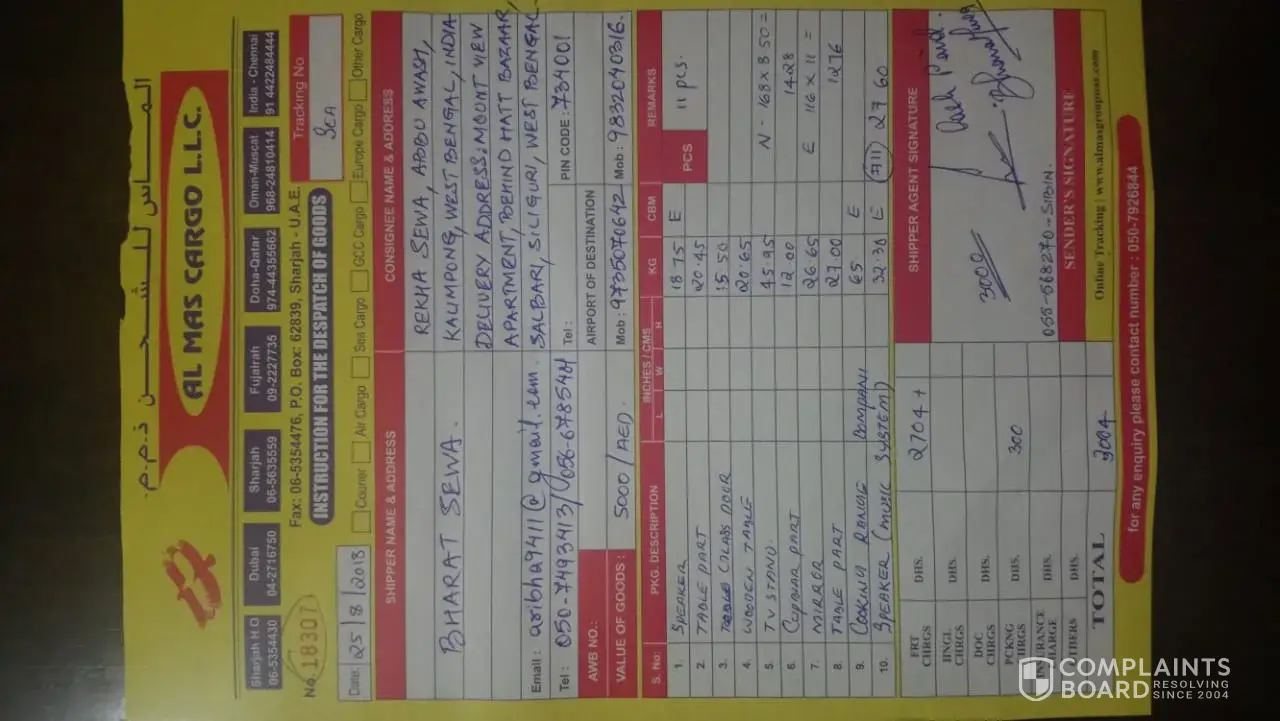 الماس للشحن ذ.م.م.
AL MAS CARGO L.L.C.
Sharjah H.O 06-5354430
Dubai 04-2716750
Sharjah 06-5635559
Fujairah 09-2227735
Doha-Qatar 974-44355662
Oman-Muscat 968-24810414
India - Chennai 91 4422484444
No. 18307
Fax: 06-5354476, P.O. Box: 62839, Sharjah - U.A.E.
INSTRUCTION FOR THE DESPATCH OF GOODS
Tracking No
SEA
Date: 25/8/2018
Courier Air Cargo Sea Cargo GCC Cargo Europe Cargo Other Cargo
SHIPPER NAME & ADDRESS
CONSIGNEE NAME & ADDRESS
BHARAT SEWA.
REKHA SEWA, ABBU AWASH,
KALIMPONG, WEST BENGAL, INDIA
DELIVERY ADDRESS: MOUNT VIEW
APARTMENT, BEHIND HATT BAZAAR,
SALBARI, SILIGURI, WEST BENGAL
Email: aribha9411@gmail.com.
Tel : 050-7493413/056-6785481
Tel :
PIN CODE : 734001
AWB NO.:
AIRPORT OF DESTINATION
VALUE OF GOODS : 5000/AED.
Mob : 9735070642
Mob : 9832040316.
S. No: PKG. DESCRIPTION INCHES / CMS L W H KG CBM PCS REMARKS
1. SPEAKER 18.75 E 11 pcs.
2. TABLE PART 20.45
3. GLASS DOOR 15.50
4. WOODEN TABLE 20.65
5. TV STAND. 45.95 N - 168 x 8.50 =
6. Cupboar PART 12.00 1428
7. MIRROR 26.65 E 116 x 11 =
8. TABLE PART 27.00 1276
9. COOKING RANGE COMPANI 65 E
10. SPEAKER (MUSIC SYSTEM) 32.30 E (#11) 2760
FRT CHRGS DHS. 2704+
HNGL CHRGS DHS.
DOC CHRGS DHS.
PCKNG CHRGS DHS. 300
INSURANCE CHARGE DHS.
OTHERS DHS.
TOTAL 3004
SHIPPER AGENT SIGNATURE
3000
Cash Paid
055-568270-SIBIN.
SENDER'S SIGNATURE
Online Tracking | www.almasgroupuae.com
for any enquiry please contact number : 050-7926844
COMPLAINTS BOARD
RESOLVING SINCE 2004